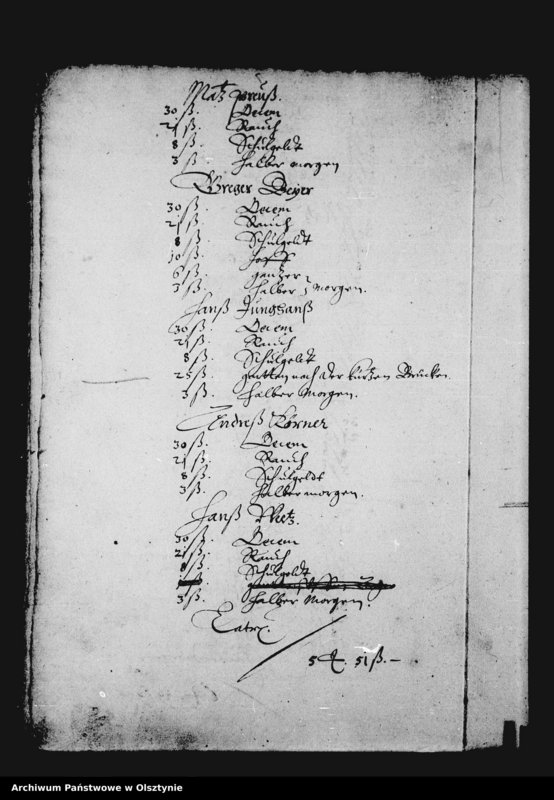 Matz Preuß.
30 ß. Decem
21 ß. Rauch
8 ß. Schulgeldt
3 ß. halber morgen
Greger Beyer
30 ß. Decem
21 ß. Rauch
8 ß. Schulgeldt
10 ß.
6 ß. gantzer
3 ß. halber Morgen.
Hanß Junghanß
30 ß. Decem
21 ß. Rauch
8 ß. Schulgeldt
25 ß. gartten nach der kurtzen Brucken.
3 ß. halber Morgen.
Andreß Körner
30 ß. Decem
21 ß. Rauch
8 ß. Schulgeldt
3 ß. halber morgen.
Hanß
30 ß. Decem
21 ß. Rauch
8 ß. Schulgeldt
3 ß. halber Morgen.
Latus.
5 51 ß. –
Archiwum Państwowe w Olsztynie